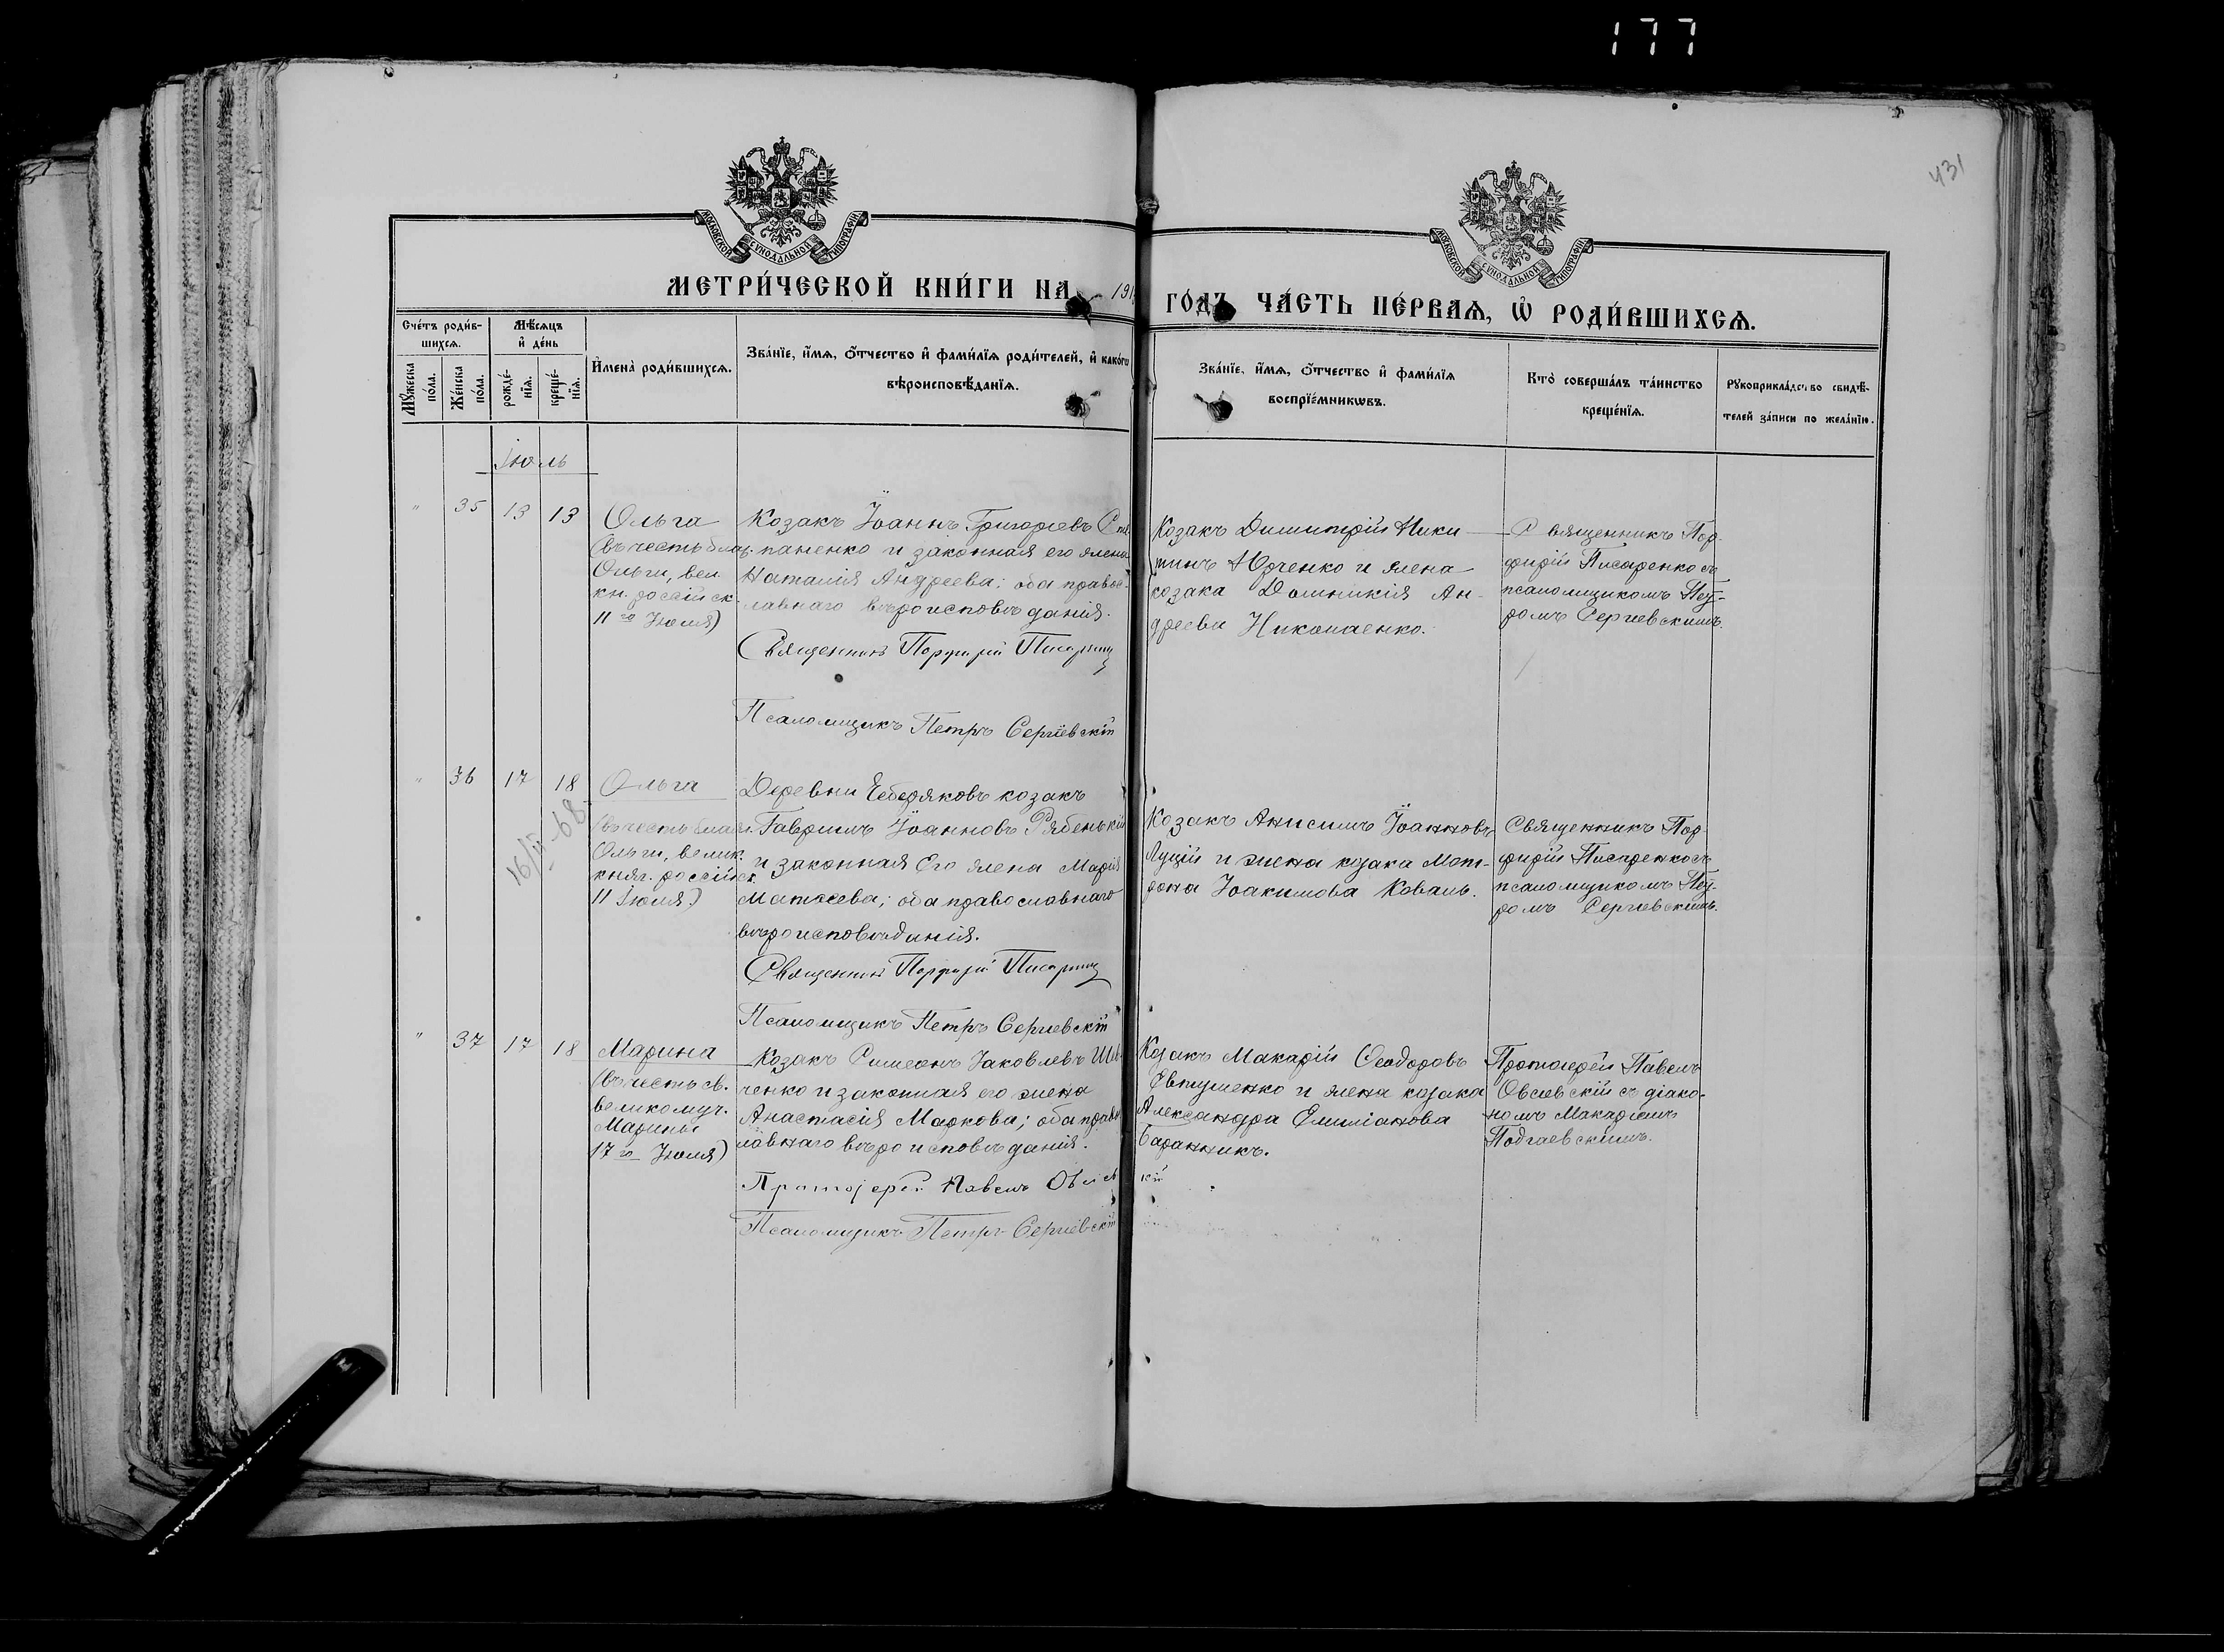 177
431
МОСКОВСКОЙ СѴНОДАЛЬНОЙ ТИПОГРАФІИ
МОСКОВСКОЙ СѴНОДАЛЬНОЙ ТИПОГРАФІИ
МЕТРИ́ЧЕСКОЙ КНИ́ГИ НА 191
ГО́ДЪ ЧА́СТЬ ПЕ́РВАѦ, Ѡ҆ РОДИ́ВШИХСѦ.
Сче́тъ роди́в-
шихсѧ.
Мꙋ́жеска
по́ла.
Же́нска
по́ла.
Мѣ́сѧцъ
и҆ де́нь
рожде́-
нїѧ.
креще́-
нїѧ.
И҆мена̀ роди́вшихсѧ.
Зва́нїе, и҆́мѧ, ѻ҆́тчество и҆ фами́лїѧ роди́телей, и҆ како́гѡ
вѣроисповѣ́данїѧ.
Зва́нїе, и҆́мѧ, ѻ҆́тчество и҆ фами́лїѧ
воспрїе́мникѡвъ.
Кто̀ соверша́лъ та́инство
креще́нїѧ.
Рꙋкоприкла́дство свидѣ́-
телей за́писи по жела́нїю.
Іюль
" 35 13 13
Ольга
(въ честь благ.
Ольги, вел.
кн. россійск.
11го Іюля)
Козакъ Іоаннъ Григоріевъ
паненко и законная его жена
Наталія Андреева; оба правос-
лавнаго вѣроисповѣданія.
Священникъ Порфирій Писаренко
Псаломщикъ Петръ Сергіевскій
Козакъ Димитрій Ники-
тинъ Юрченко и жена
козака Домникія Ан-
дреева Николаенко.
Священникъ Пор-
фирій Писаренко съ
псаломщикомъ Пет-
ромъ Сергіевскимъ.
" 36 17 18
16/II-68
Ольга
(въ честь благ.
Ольги, велик.
княг. россійск.
11 Іюля)
Деревни Чеберяковъ козакъ
Гавріилъ Іоанновъ Рябенькій
и законная его жена Марія
Матѳеева; оба православнаго
вѣроисповѣданія.
Священникъ Порфирій Писаренко
Псаломщикъ Петръ Сергіевскій
Козакъ Анисимъ Іоанновъ
Луцій и жена козака Мат-
рона Іоакимова Коваль.
Священникъ Пор-
фирій Писаренко съ
псаломщикомъ Пет-
ромъ Сергіевскимъ.
" 37 17 18
Марина
(въ честь св.
великомуч.
Марины
17го Іюля)
Козакъ Симеонъ Іаковлевъ Шев-
ченко и законная его жена
Анастасія Маркова; оба правос-
лавнаго вѣроисповѣданія.
Протоіерей Павелъ Овсіевскій
Псаломщикъ Петръ Сергіевскій
Козакъ Макарій Ѳеодоровъ
Евтушенко и жена козака
Александра Емиліанова
Баранникъ.
Протоіерей Павелъ
Овсіевскій съ діако-
номъ Макаріемъ
Подгаевскимъ.